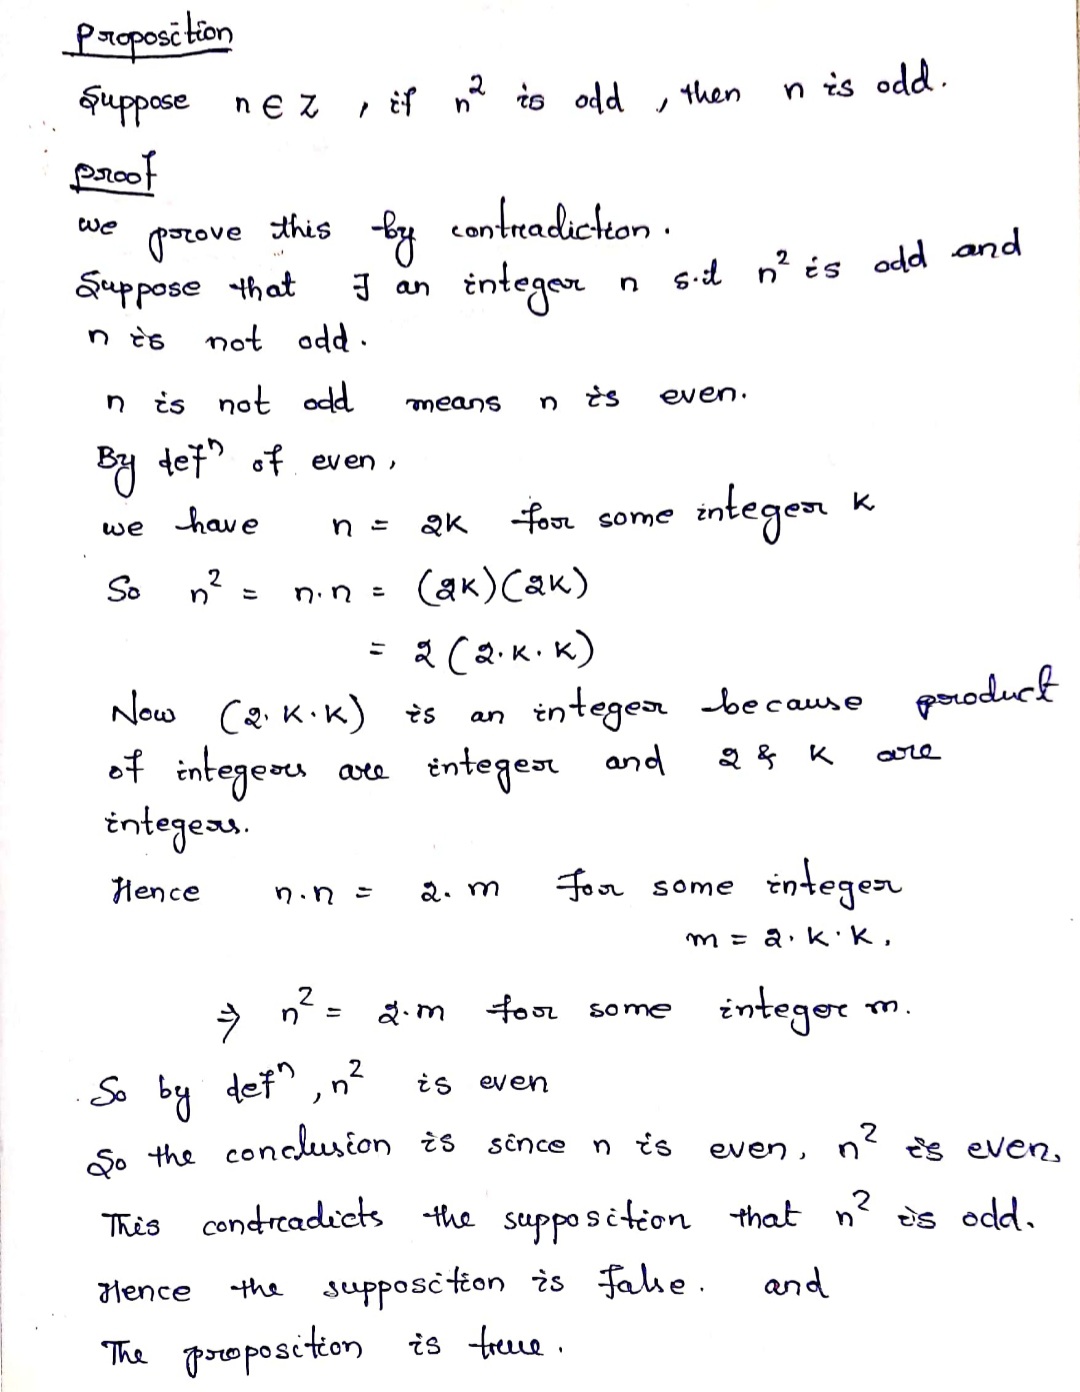 Proposition
Suppose n ∈ Z , if n² is odd , then n is odd.
Proof
we prove this by contradiction.
Suppose that ∃ an integer n s.t n² is odd and
n is not odd.
n is not odd means n is even.
By defⁿ of even,
we have n = 2K for some integer K
So n² = n.n = (2K)(2K)
= 2(2.K.K)
Now (2.K.K) is an integer because product
of integers are integer and 2 & K are
integers.
Hence n.n = 2.m for some integer
m = 2.K.K,
⇒ n² = 2.m for some integer m.
So by defⁿ, n² is even
So the conclusion is since n is even, n² is even,
This contradicts the supposition that n² is odd.
Hence the supposition is false. and
The proposition is true.